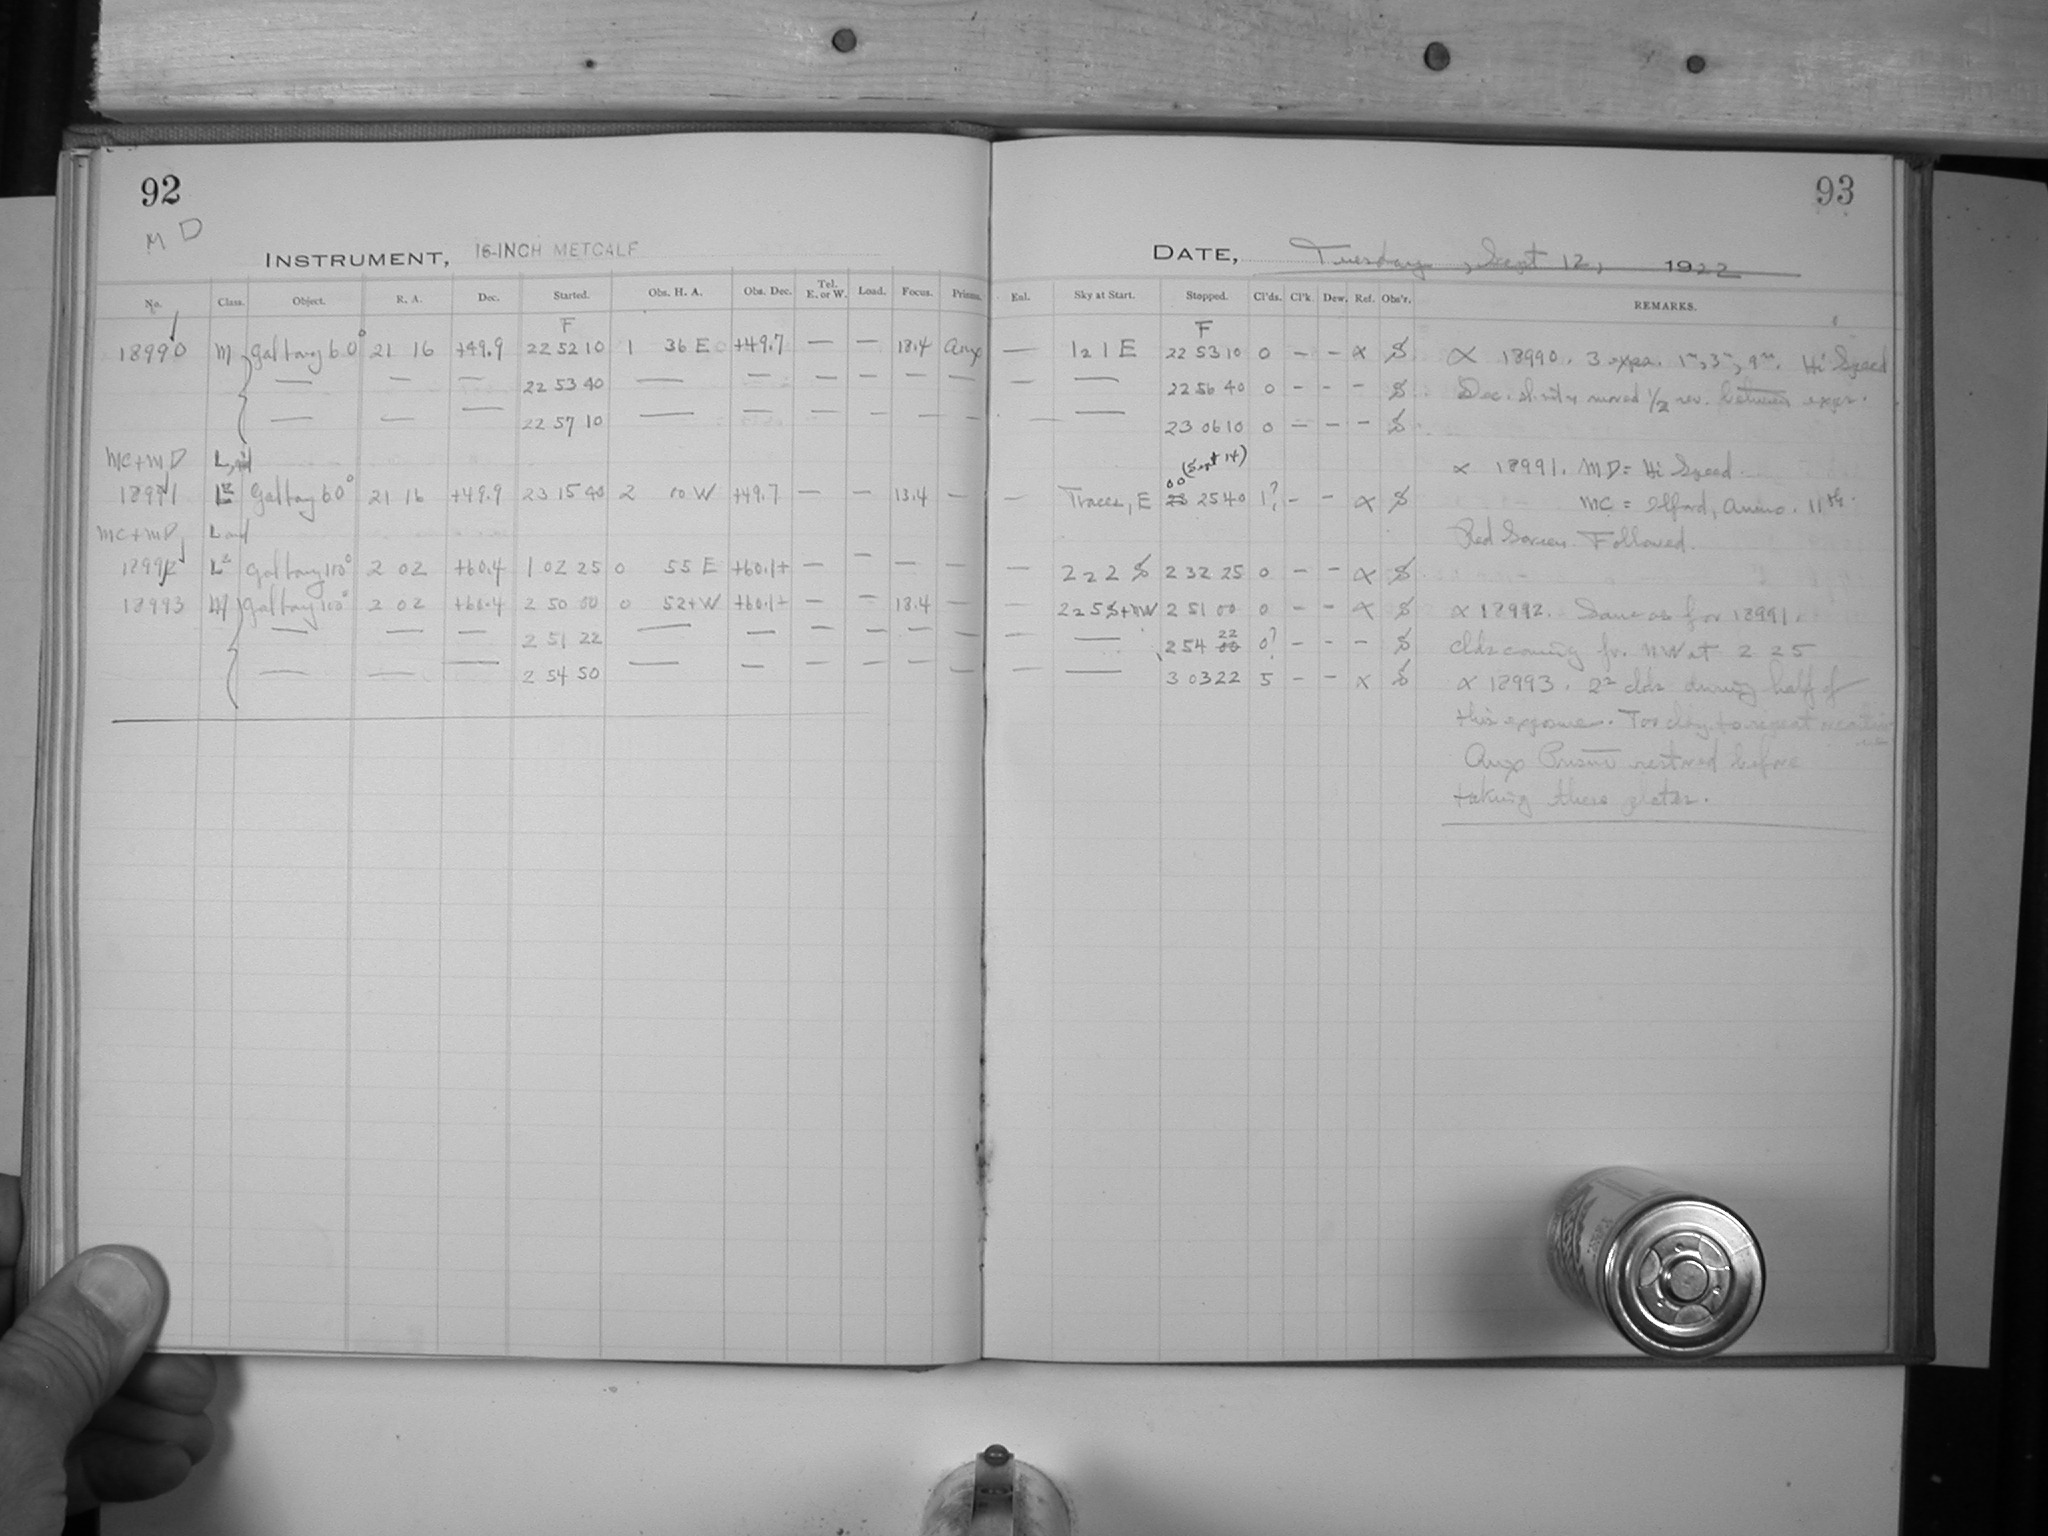 92
93
M D
INSTRUMENT, 16-INCH METCALF
DATE, Tuesday, Sept 12, 1922
No. Class. Object. R. A. Dec. Started. Obs. H. A. Obs. Dec. Tel. E. or W. Load. Focus. Prisms. Enl. Sky at Start. Stopped. Cl'ds. Cl'k. Dew. Ref. Obs'r. REMARKS.
F F
18990 M 60° 21 16 +49.9 22 52 10 1 36 E +49.7 — — 18.4 Aux — 1 2 1 E 22 53 10 0 – – α S α 18990. 3 exps. 1m, 3m, 9m. Hi Speed
— — — 22 53 40 — — — — — — — — 22 56 40 0 – – – S Dec. moved 1/2 rev. between exps.
— — — 22 57 10 — — — — — — — — 23 06 10 0 – – – S
MC + MD L, and (Sept 14) α 18991. MD = Hi Speed.
18991 60° 21 16 +49.9 23 15 40 2 10 W +49.7 — — 13.4 — — Traces, E 00 23 25 40 1? – – α S MC = Ilford, 11th.
MC + MD L and Red Screen Followed.
18992 100° 2 02 +60.4 1 02 25 0 55 E +60.1+ — — — — — 2 2 2 S 2 32 25 0 – – α S
18993 M 100° 2 02 +60.4 2 50 00 0 52+W +60.1+ — — 18.4 — — 2 2 5 S+NW 2 51 00 0 – – α S α 18992. Same as for 18991.
— — — 2 51 22 — — — — — — — — 2 54 22 00 0? – – – S clds coming fr. NW at 2 25
— — — 2 54 50 — — — — — — — — 3 03 22 5 – – x S α 18993. clds during half of
this exposure. Too cldy to repeat
Aux Prism restored before
taking these plates.